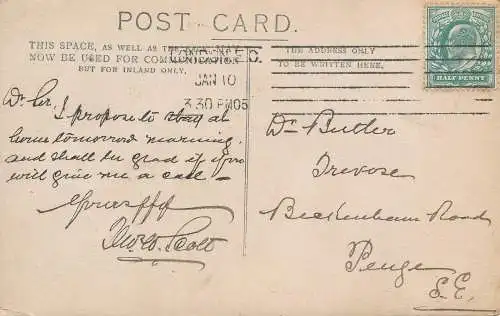 POST CARD.
THIS SPACE, AS WELL AS THE
NOW BE USED FOR COMMUNICATION
BUT FOR INLAND ONLY.
LONDON E.C.
JAN 10
3.30 PM 05
THE ADDRESS ONLY
TO BE WRITTEN HERE.
HALF PENNY
Dr Sir,
I propose to stay at
home tomorrow morning
and shall be glad if you
will give me a call —
Yours
Scott
Dr Butler
Trevose
Beckenham Road
Penge
S.E.